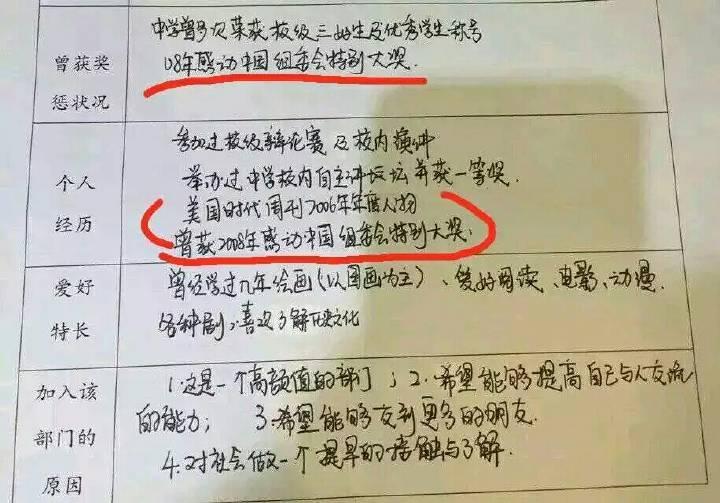 曾获奖
惩状况
中学曾多次荣获校级三好生及优秀学生称号
08年感动中国组委会特别大奖.
个人
经历
参加过校级辩论赛及校内演讲
举办过中学校内自主讲坛并获一等奖.
美国时代周刊2006年年度人物
曾获2008年感动中国组委会特别大奖.
爱好
特长
曾经学过九年绘画(以国画为主)、爱好阅读、电影、动漫、
各种剧;喜欢了解历史文化
加入该
部门的
原因
1.这是一个高颜值的部门;2.希望能够提高自己与人交流
的能力; 3.希望能够交到更多的朋友.
4.对社会做一个提早的接触与了解.